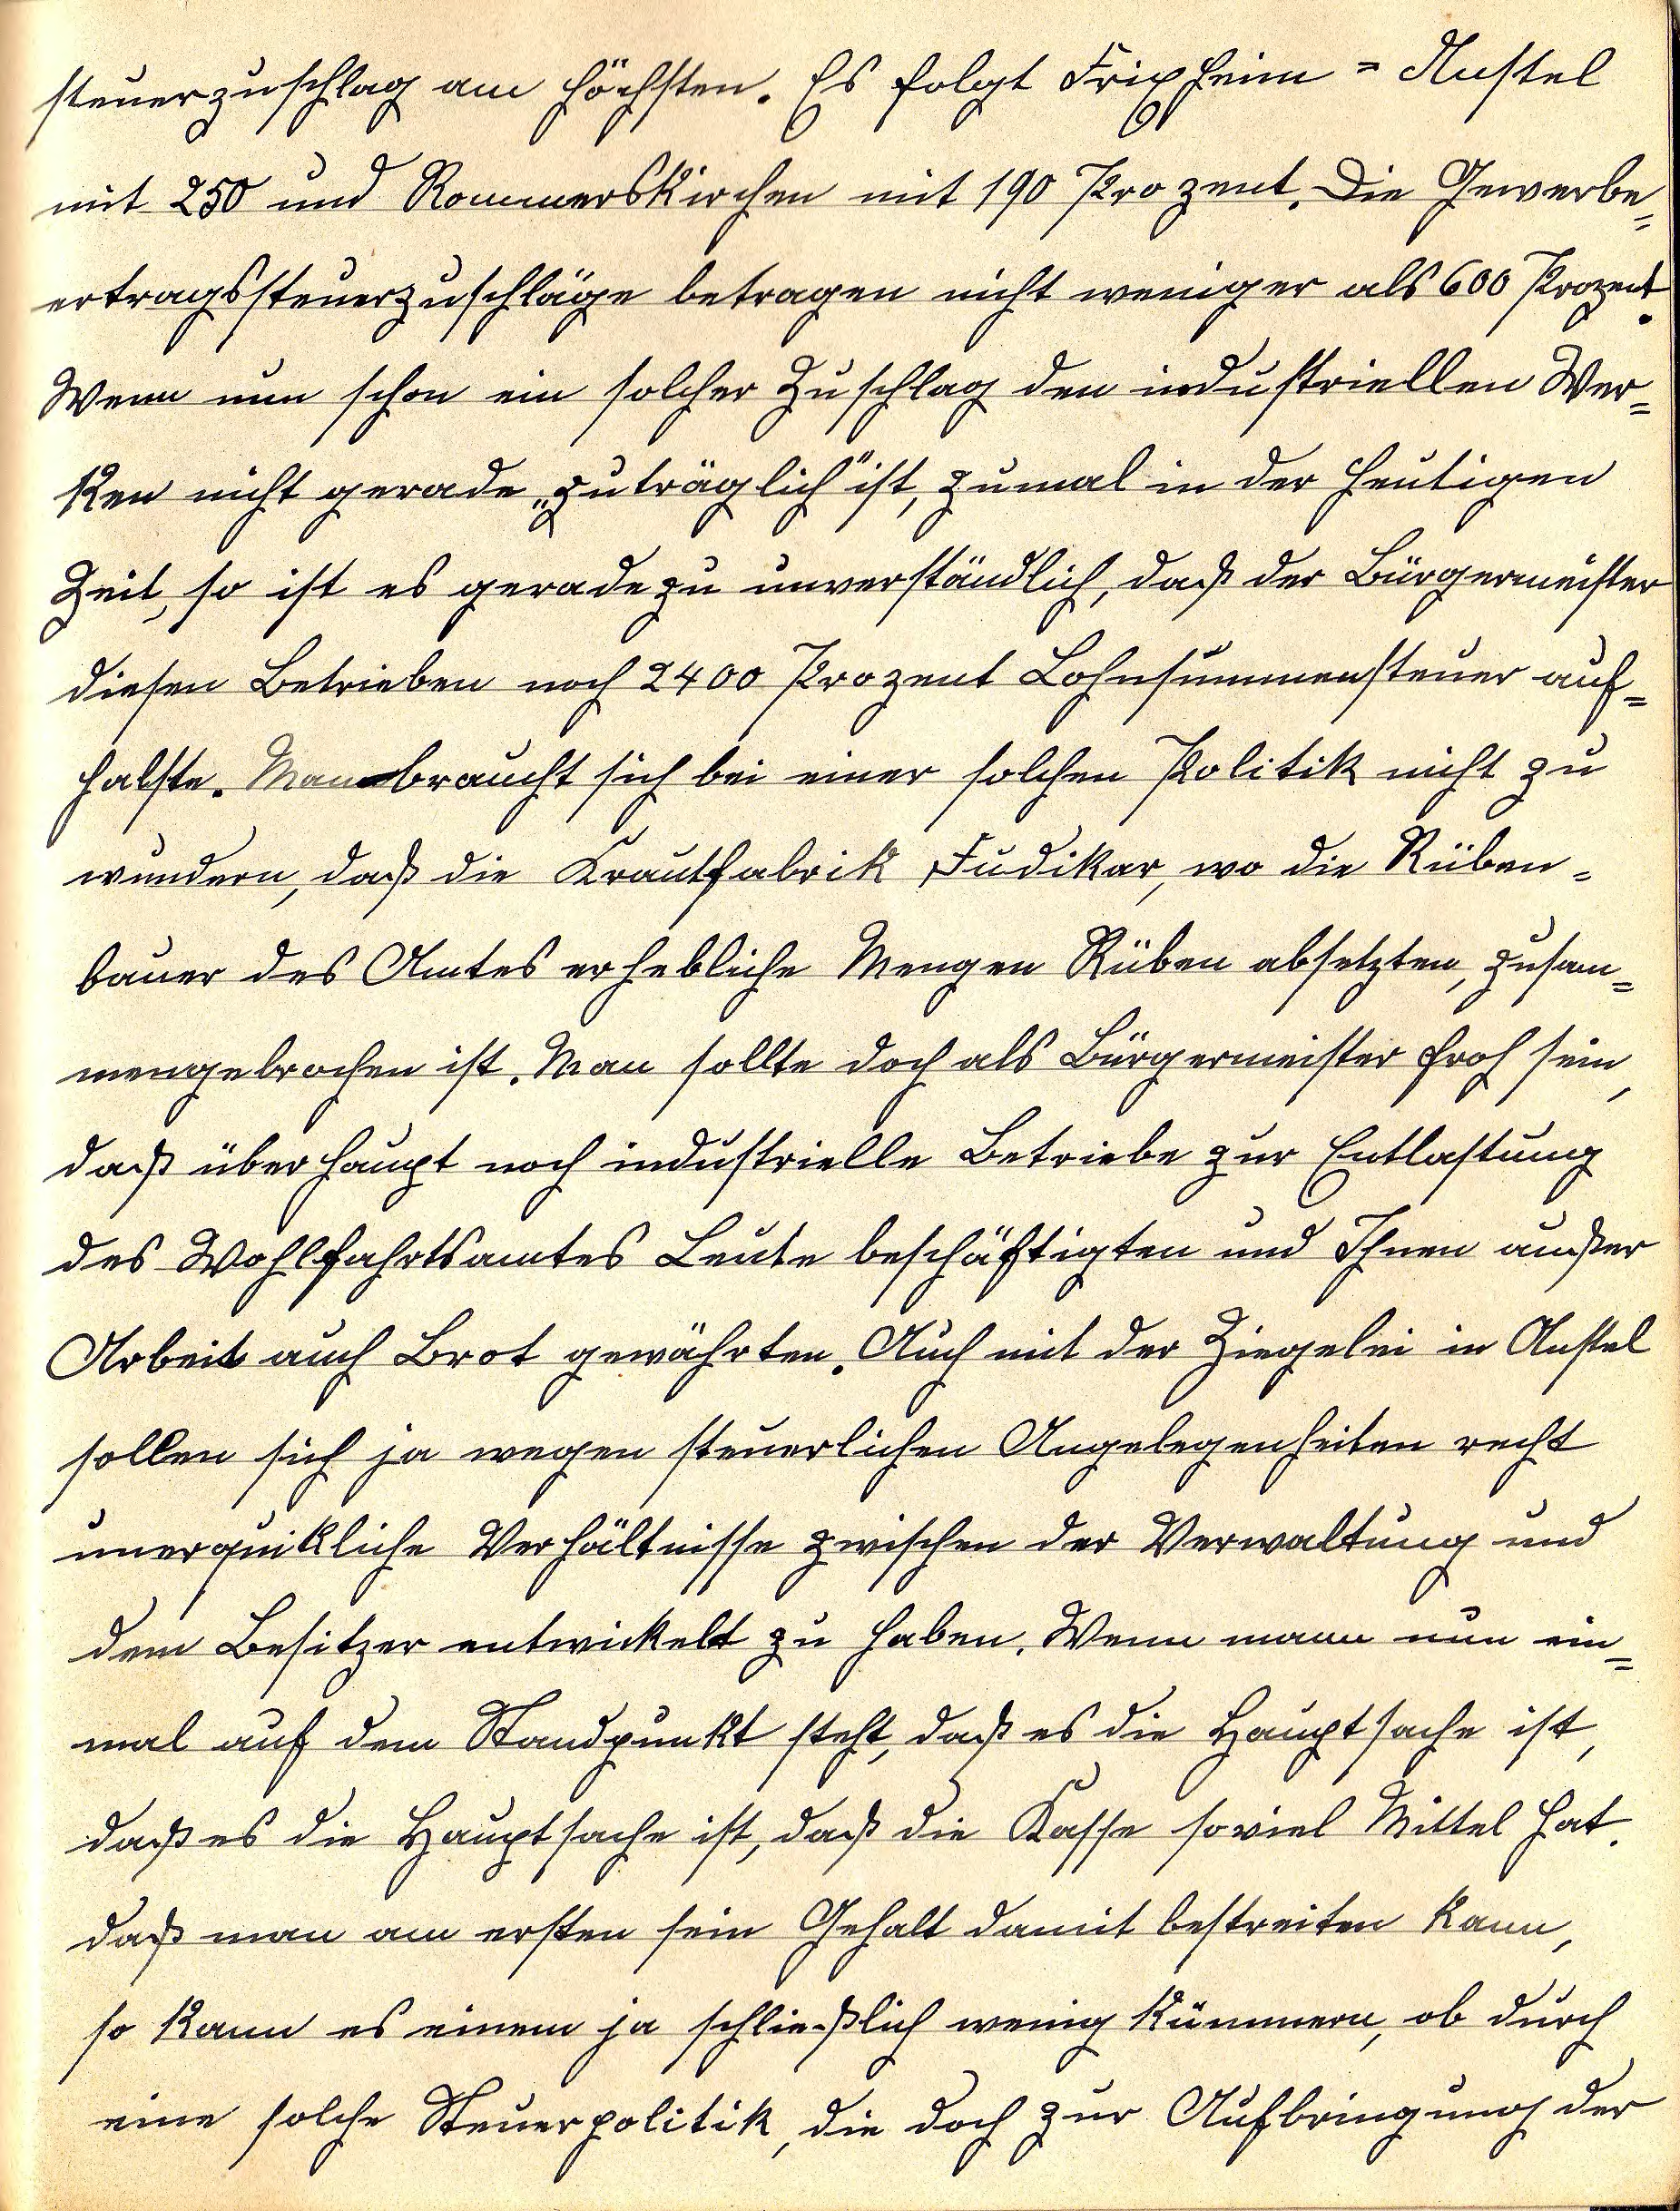 steuerzuschlag am höchsten. Es folgt Frixheim = Anstel
mit 250 und Rommerskirchen mit 190 Prozent. Die Gewerbe=
ertragssteuerzuschläge betragen nicht weniger als 600 Prozent.
Wenn nun schon ein solcher Zuschlag den industriellen Wer=
ken nicht gerade „zuträglich" ist, zumal in der heutigen
Zeit, so ist es geradezu unverständlich, daß der Bürgermeister
diesen Betrieben noch 2400 Prozent Lohnsummensteuer auf=
halste. Man braucht sich bei einer solchen Politik nicht zu
wundern, daß die Krautfabrik Fudikar, wo die Rüben=
bauer des Amtes erhebliche Mengen Rüben absetzten, zusam=
mengebrochen ist. Man sollte doch als Bürgermeister froh sein,
daß überhaupt noch industrielle Betriebe zur Entlastung
des Wohlfahrtsamtes Leute beschäftigten und Ihnen außer
Arbeit auch Brot gewährten. Auch mit der Ziegelei in Anstel
sollen sich ja wegen steuerlichen Angelegenheiten recht
unerquikliche Verhältnisse zwischen der Verwaltung und
dem Besitzer entwickelt zu haben. Wenn mann nun ein=
mal auf dem Standpunkt steht, daß es die Hauptsache ist,
daß es die Hauptsache ist, daß die Kasse soviel Mittel hat.
daß man am ersten sein Gehalt damit bestreiten kann,
so kann es einem ja schließlich wenig kümmern, ob durch
eine solche Steuerpolitik, die doch zur Aufbringung der